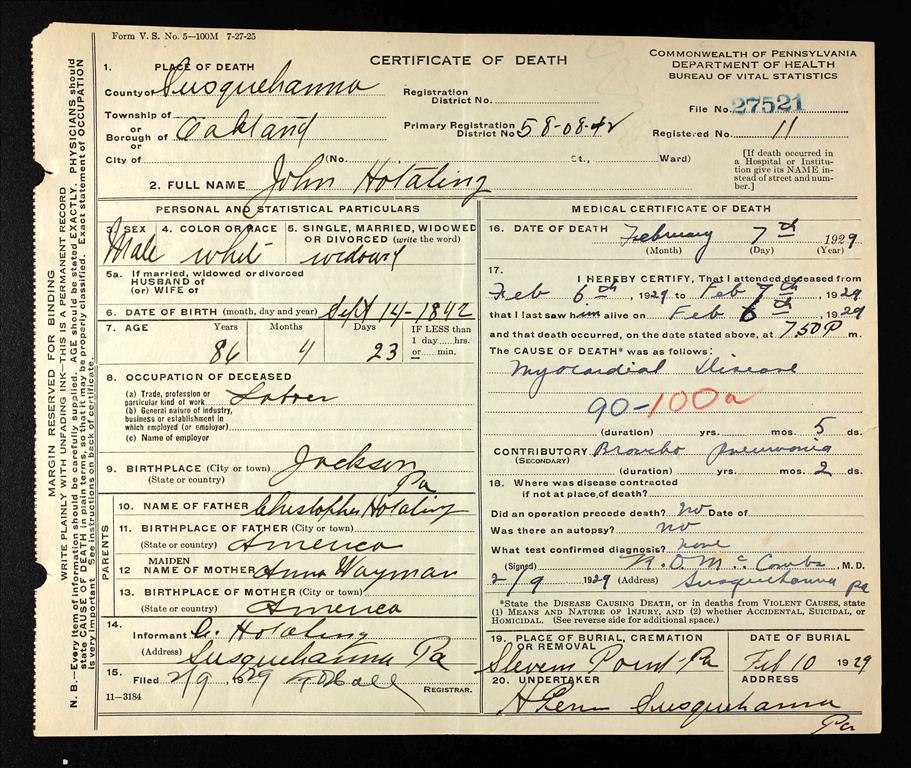 Form V. S. No. 5—100M 7-27-25
CERTIFICATE OF DEATH
COMMONWEALTH OF PENNSYLVANIA
DEPARTMENT OF HEALTH
BUREAU OF VITAL STATISTICS
1. PLACE OF DEATH
County of Susquehanna
Township of
or
Borough of Oakland
or
City of
Registration
District No.
Primary Registration
District No. 58-08-42
File No. 27521
Registered No. 11
(No. St., Ward)
[If death occurred in
a Hospital or Institu-
tion give its NAME in-
stead of street and num-
ber.]
2. FULL NAME John Hotaling
PERSONAL AND STATISTICAL PARTICULARS
3. SEX Male
4. COLOR OR RACE white
5. SINGLE, MARRIED, WIDOWED
OR DIVORCED (write the word)
widowed
5a. If married, widowed or divorced
HUSBAND of
(or) WIFE of
6. DATE OF BIRTH (month, day and year) Sept 14-1842
7. AGE Years Months Days IF LESS than
1 day....hrs.
or.....min.
86 4 23
8. OCCUPATION OF DECEASED
(a) Trade, profession or
particular kind of work Labor
(b) General nature of industry,
business or establishment in
which employed (or employer)
(c) Name of employer
9. BIRTHPLACE (City or town) Jackson
(State or country) Pa
PARENTS
10. NAME OF FATHER Christopher Hotaling
11. BIRTHPLACE OF FATHER (City or town)
(State or country) America
12 MAIDEN
NAME OF MOTHER Anna Wayman
13. BIRTHPLACE OF MOTHER (City or town)
(State or country) America
14.
Informant C. Hotaling
(Address) Susquehanna Pa
15.
Filed 2/9, 1929
REGISTRAR.
11—3184
MEDICAL CERTIFICATE OF DEATH
16. DATE OF DEATH
February 7th 1929
(Month) (Day) (Year)
17.
I HEREBY CERTIFY, That I attended deceased from
Feb 6th, 1929 to Feb 7th, 1929
that I last saw him alive on Feb 6th, 1929
and that death occurred, on the date stated above, at 7.50 P m.
The CAUSE OF DEATH* was as follows:
Myocardial Disease
90-100a
(duration) yrs. mos. 5 ds.
CONTRIBUTORY Broncho pneumonia
(SECONDARY)
(duration) yrs. mos. 2 ds.
18. Where was disease contracted
if not at place of death?
Did an operation precede death? no Date of
Was there an autopsy? no
What test confirmed diagnosis? none
(Signed) McCombs, M. D.
2/9 1929 (Address) Susquehanna Pa
*State the DISEASE CAUSING DEATH, or in deaths from VIOLENT CAUSES, state
(1) MEANS AND NATURE OF INJURY, and (2) whether ACCIDENTAL, SUICIDAL, or
HOMICIDAL. (See reverse side for additional space.)
19. PLACE OF BURIAL, CREMATION
OR REMOVAL
Stevens Point-Pa
DATE OF BURIAL
Feb 10 1929
20. UNDERTAKER
ADDRESS
Susquehanna
Pa
MARGIN RESERVED FOR BINDING
WRITE PLAINLY WITH UNFADING INK—THIS IS A PERMANENT RECORD
N. B.—Every item of information should be carefully supplied. AGE should be stated EXACTLY. PHYSICIANS should
state CAUSE OF DEATH in plain terms, so that it may be properly classified. Exact statement of OCCUPATION
is very important. See instructions on back of certificate.